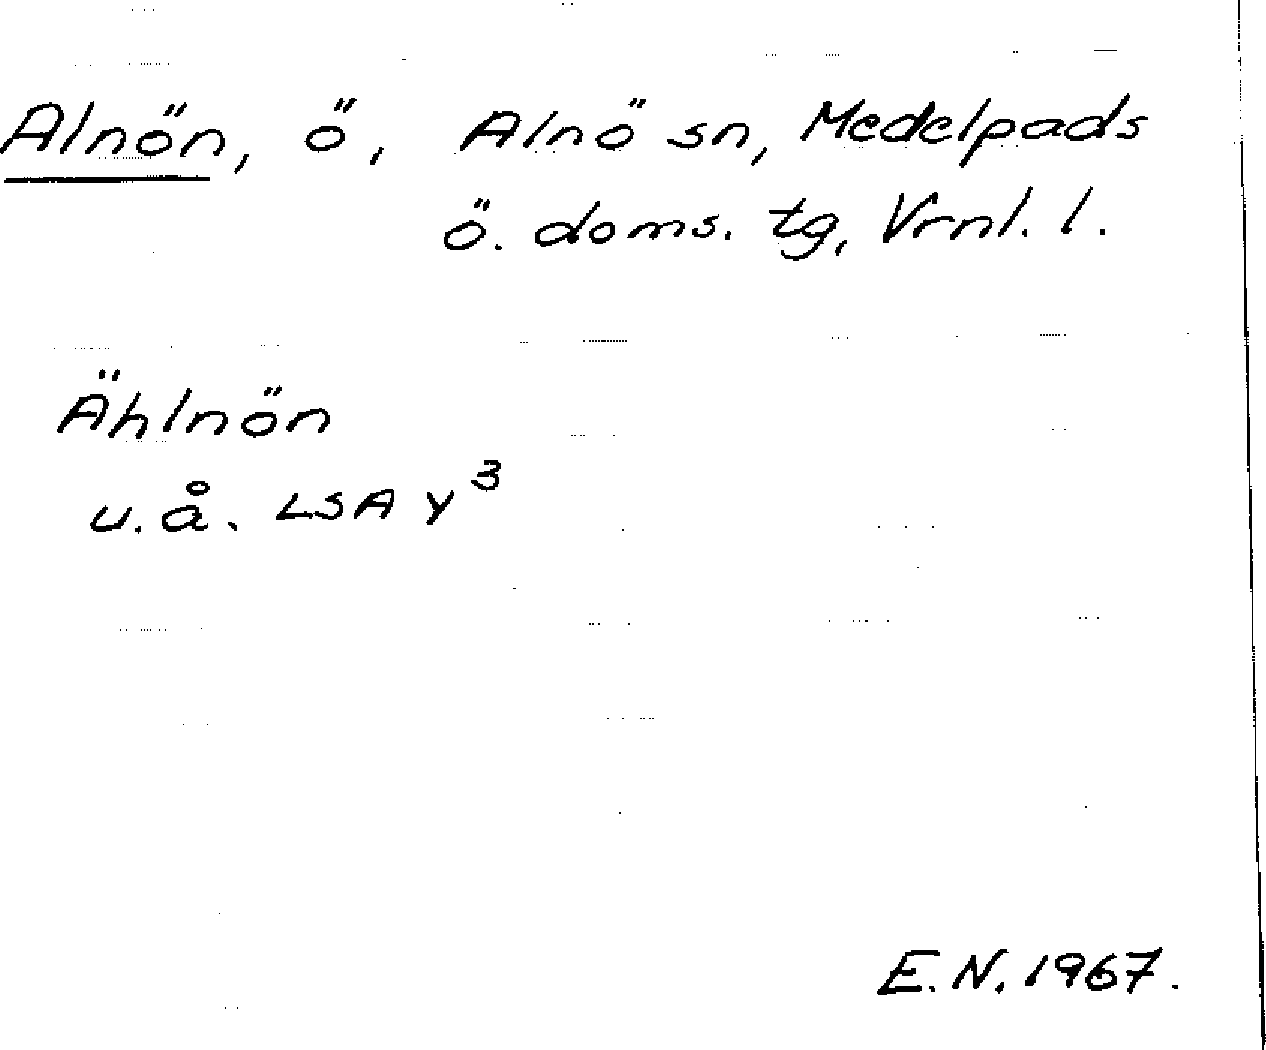 Alnön, ö, Alnö sn, Medelpads
ö. doms. tg, Vrnl. l.
Ählnön
u. å. LSA Y³
E. N. 1967.